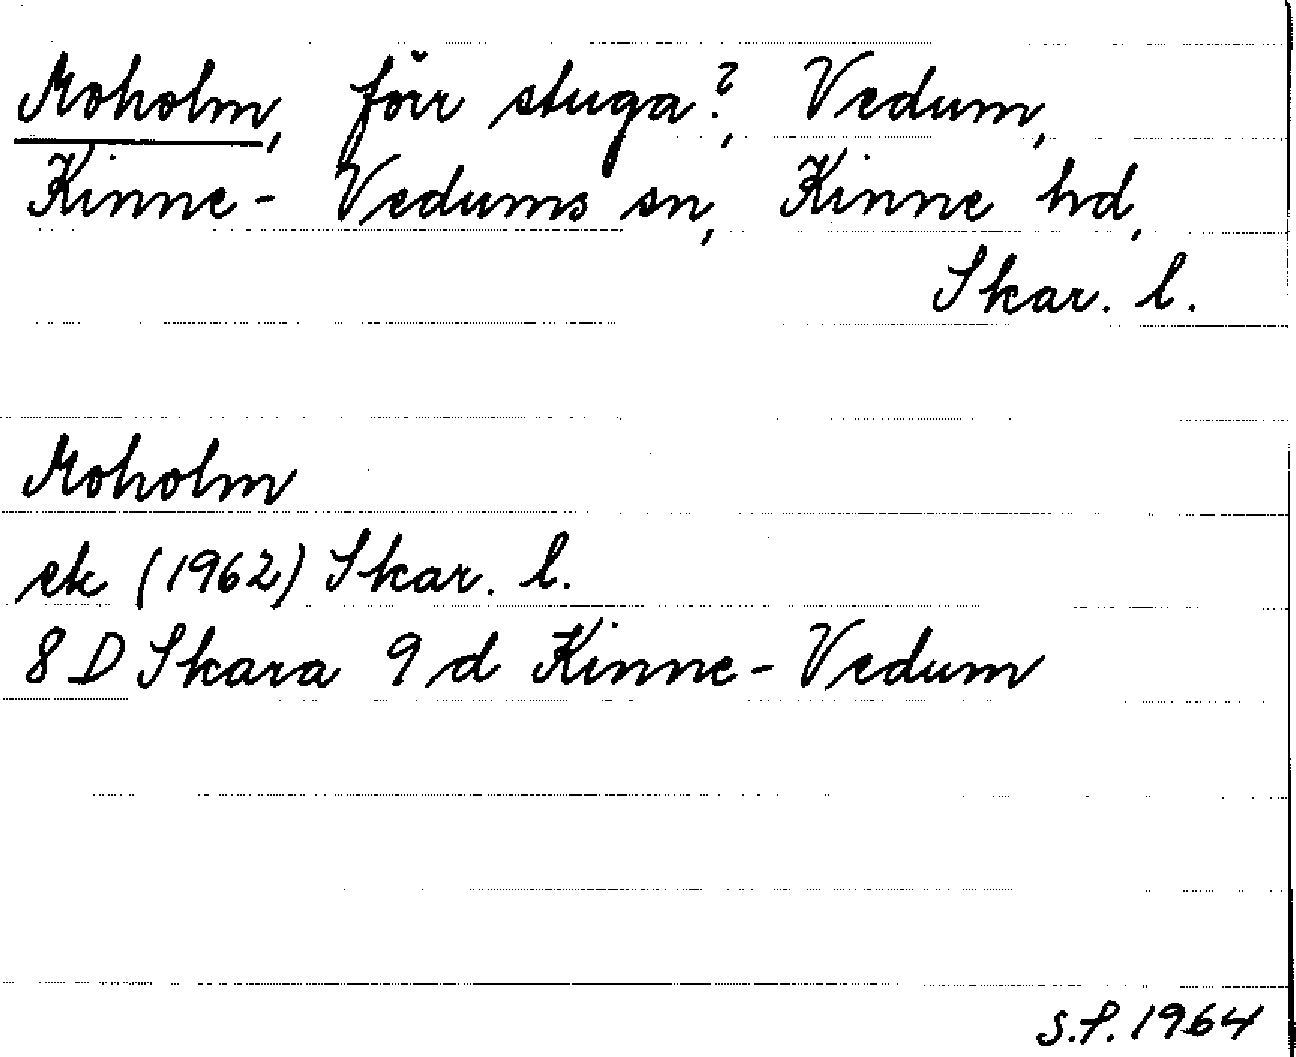 Moholm, förr stuga?, Vedum,
Kinne- Vedums sn, Kinne hd,
Skar. l.
Moholm
ek (1962) Skar. l.
8 D Skara 9 d Kinne-Vedum
S.P. 1964